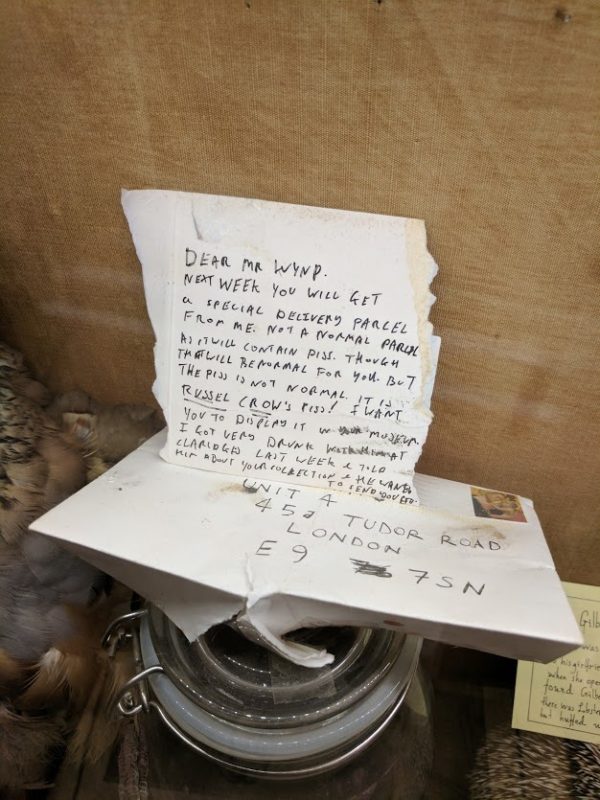 DEAR MR WYND.
NEXT WEEK YOU WILL GET
a SPECIAL DELIVERY PARCEL
FROM ME. NOT A NORMAL PARCEL
AS IT WILL CONTAIN PISS. THOUGH
THAT WILL BE NORMAL FOR YOU. BUT
THE PISS IS NOT NORMAL. IT IS
RUSSEL CROW'S PISS! I WANT
YOU TO DISPLAY IT IN MUSEUM
I GOT VERY DRUNK WITH HIM AT
CLARIDGES LAST WEEK & TOLD
HIM ABOUT YOUR COLLECTION & HE WANTED
TO SEND YOU
UNIT 4
45a TUDOR ROAD
LONDON
E9 7SN
Gilb
was
his girlfrie
when she ope
found Gilb
there was
but huffed